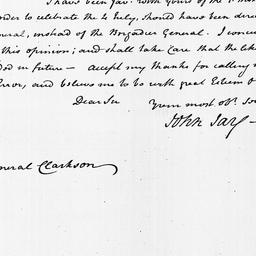 I have been fav.d with yours of the
order to celebrate the 4 July, should have been
General, instead of the Brigadier General. I
this opinion; and shall take care that the like
in future — accept my thanks for
Error, and believe me to be with great Esteem
Dear Sir
Your most ob.t
John Jay —
General Clarkson